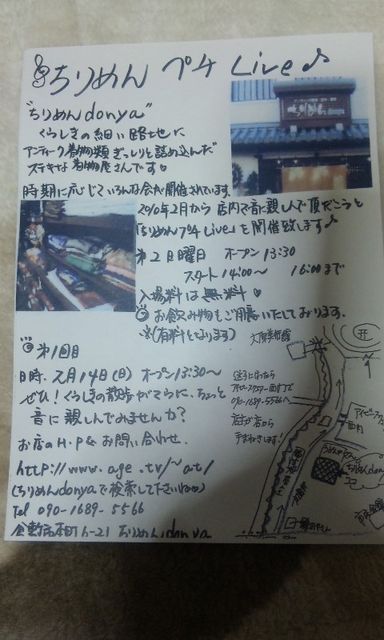 ちりめん プチ Live♪
"ちりめんdonya"
くらしきの細い路地に
アンティーク着物類ぎっしりと詰め込んだ
ステキな着物屋さんです♡
時期に応じていろんな会が開催されています。
2010年2月から 店内で音に親しんで頂だこうと
「ちりめんプチLive」を開催致します♪
第2日曜日 オープン13:30
スタート14:00~ 16:00まで
入場料は無料♡
お飲み物もご用意いたしております。
※(有料となります)
第1回目
日時、2月14日(日) オープン13:30~
ぜひ!くらしきの散歩がてらに、ちょっと
音に親しんでみませんか?
お店のH.P& お問い合わせ.
http://www.age.tv/~art/
(ちりめんdonyaで検索して下さいね)
Tel 090-1689-5566
倉敷市本町6-21 ちりめんdonya
大原美術館
090-1689-5566へ
店主が店から
手まねきします!
アイビースクエア